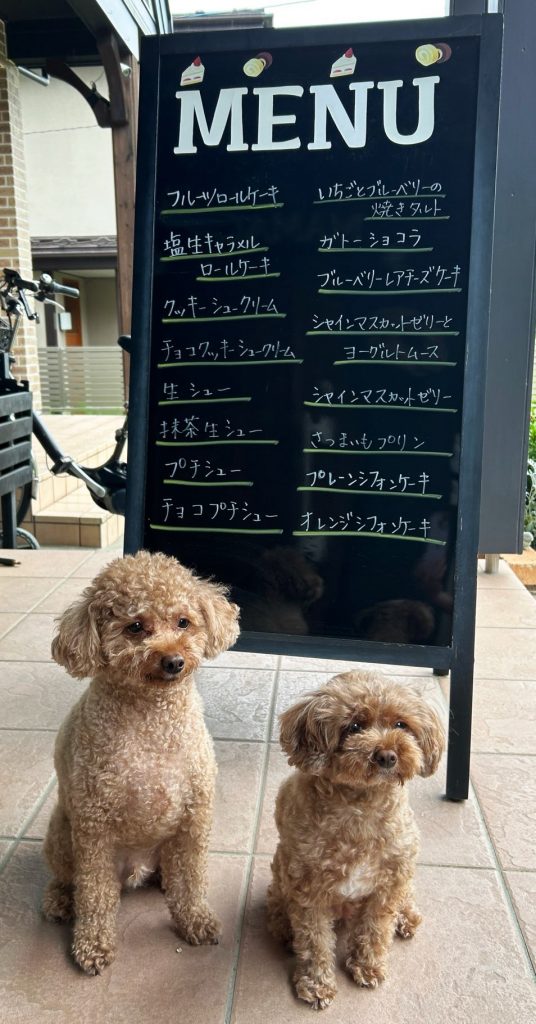 MENU
フルーツロールケーキ
塩生キャラメル
ロールケーキ
クッキーシュークリーム
チョコクッキーシュークリーム
生シュー
抹茶生シュー
プチシュー
チョコプチシュー
いちごとブルーベリーの
焼きタルト
ガトーショコラ
ブルーベリーレアチーズケーキ
シャインマスカットゼリーと
ヨーグルトムース
シャインマスカットゼリー
さつまいもプリン
プレーンシフォンケーキ
オレンジシフォンケーキ